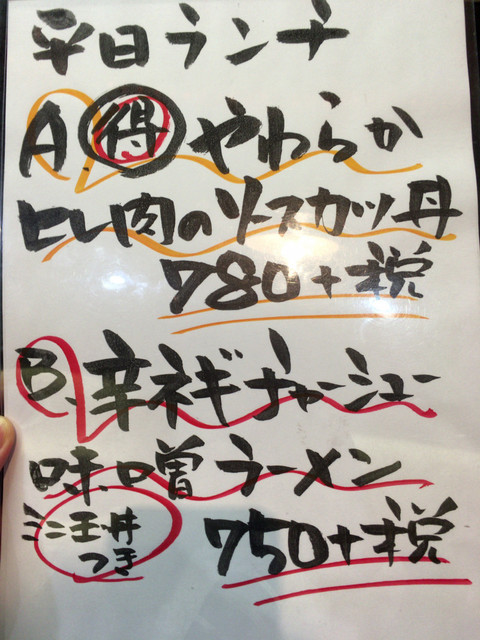 平日ランチ
A 得 やわらか
ヒレ肉のソースカツ丼
780+税
B.辛ネギチャーシュー
味噌ラーメン
ミニ玉丼
つき
750+税